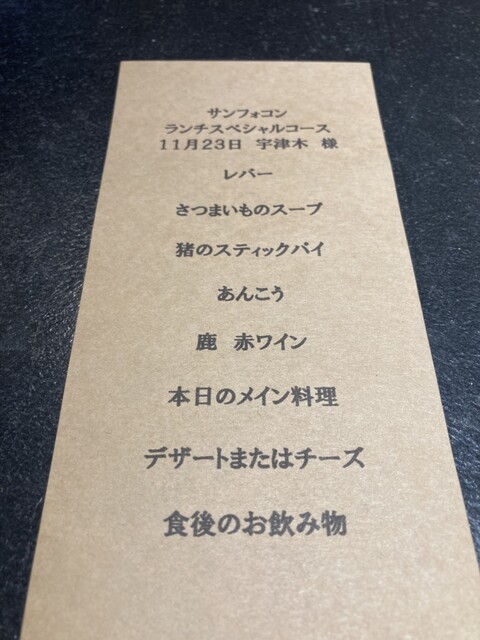 サンフォコン
ランチスペシャルコース
11月23日　宇津木　様
レバー
さつまいものスープ
猪のスティックパイ
あんこう
鹿　赤ワイン
本日のメイン料理
デザートまたはチーズ
食後のお飲み物